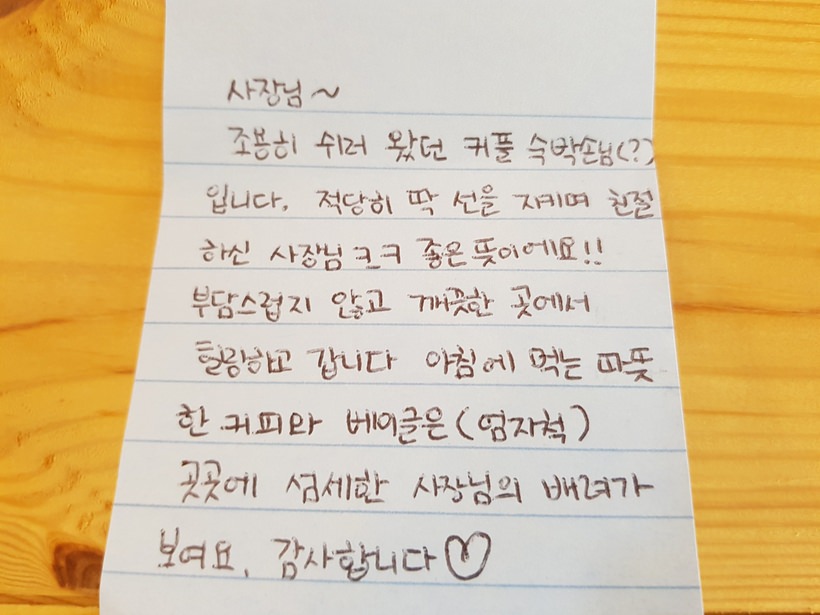 사장님~
조용히 쉬러 왔던 커플 숙박손님(?)
입니다. 적당히 딱 선을 지키며 친절
하신 사장님 ㅋㅋ 좋은 뜻이에요!!
부담스럽지 않고 깨끗한 곳에서
힐링하고 갑니다 아침에 먹는 따뜻
한 커피와 베이글은 (엄지척)
곳곳에 섬세한 사장님의 배려가
보여요. 감사합니다♡